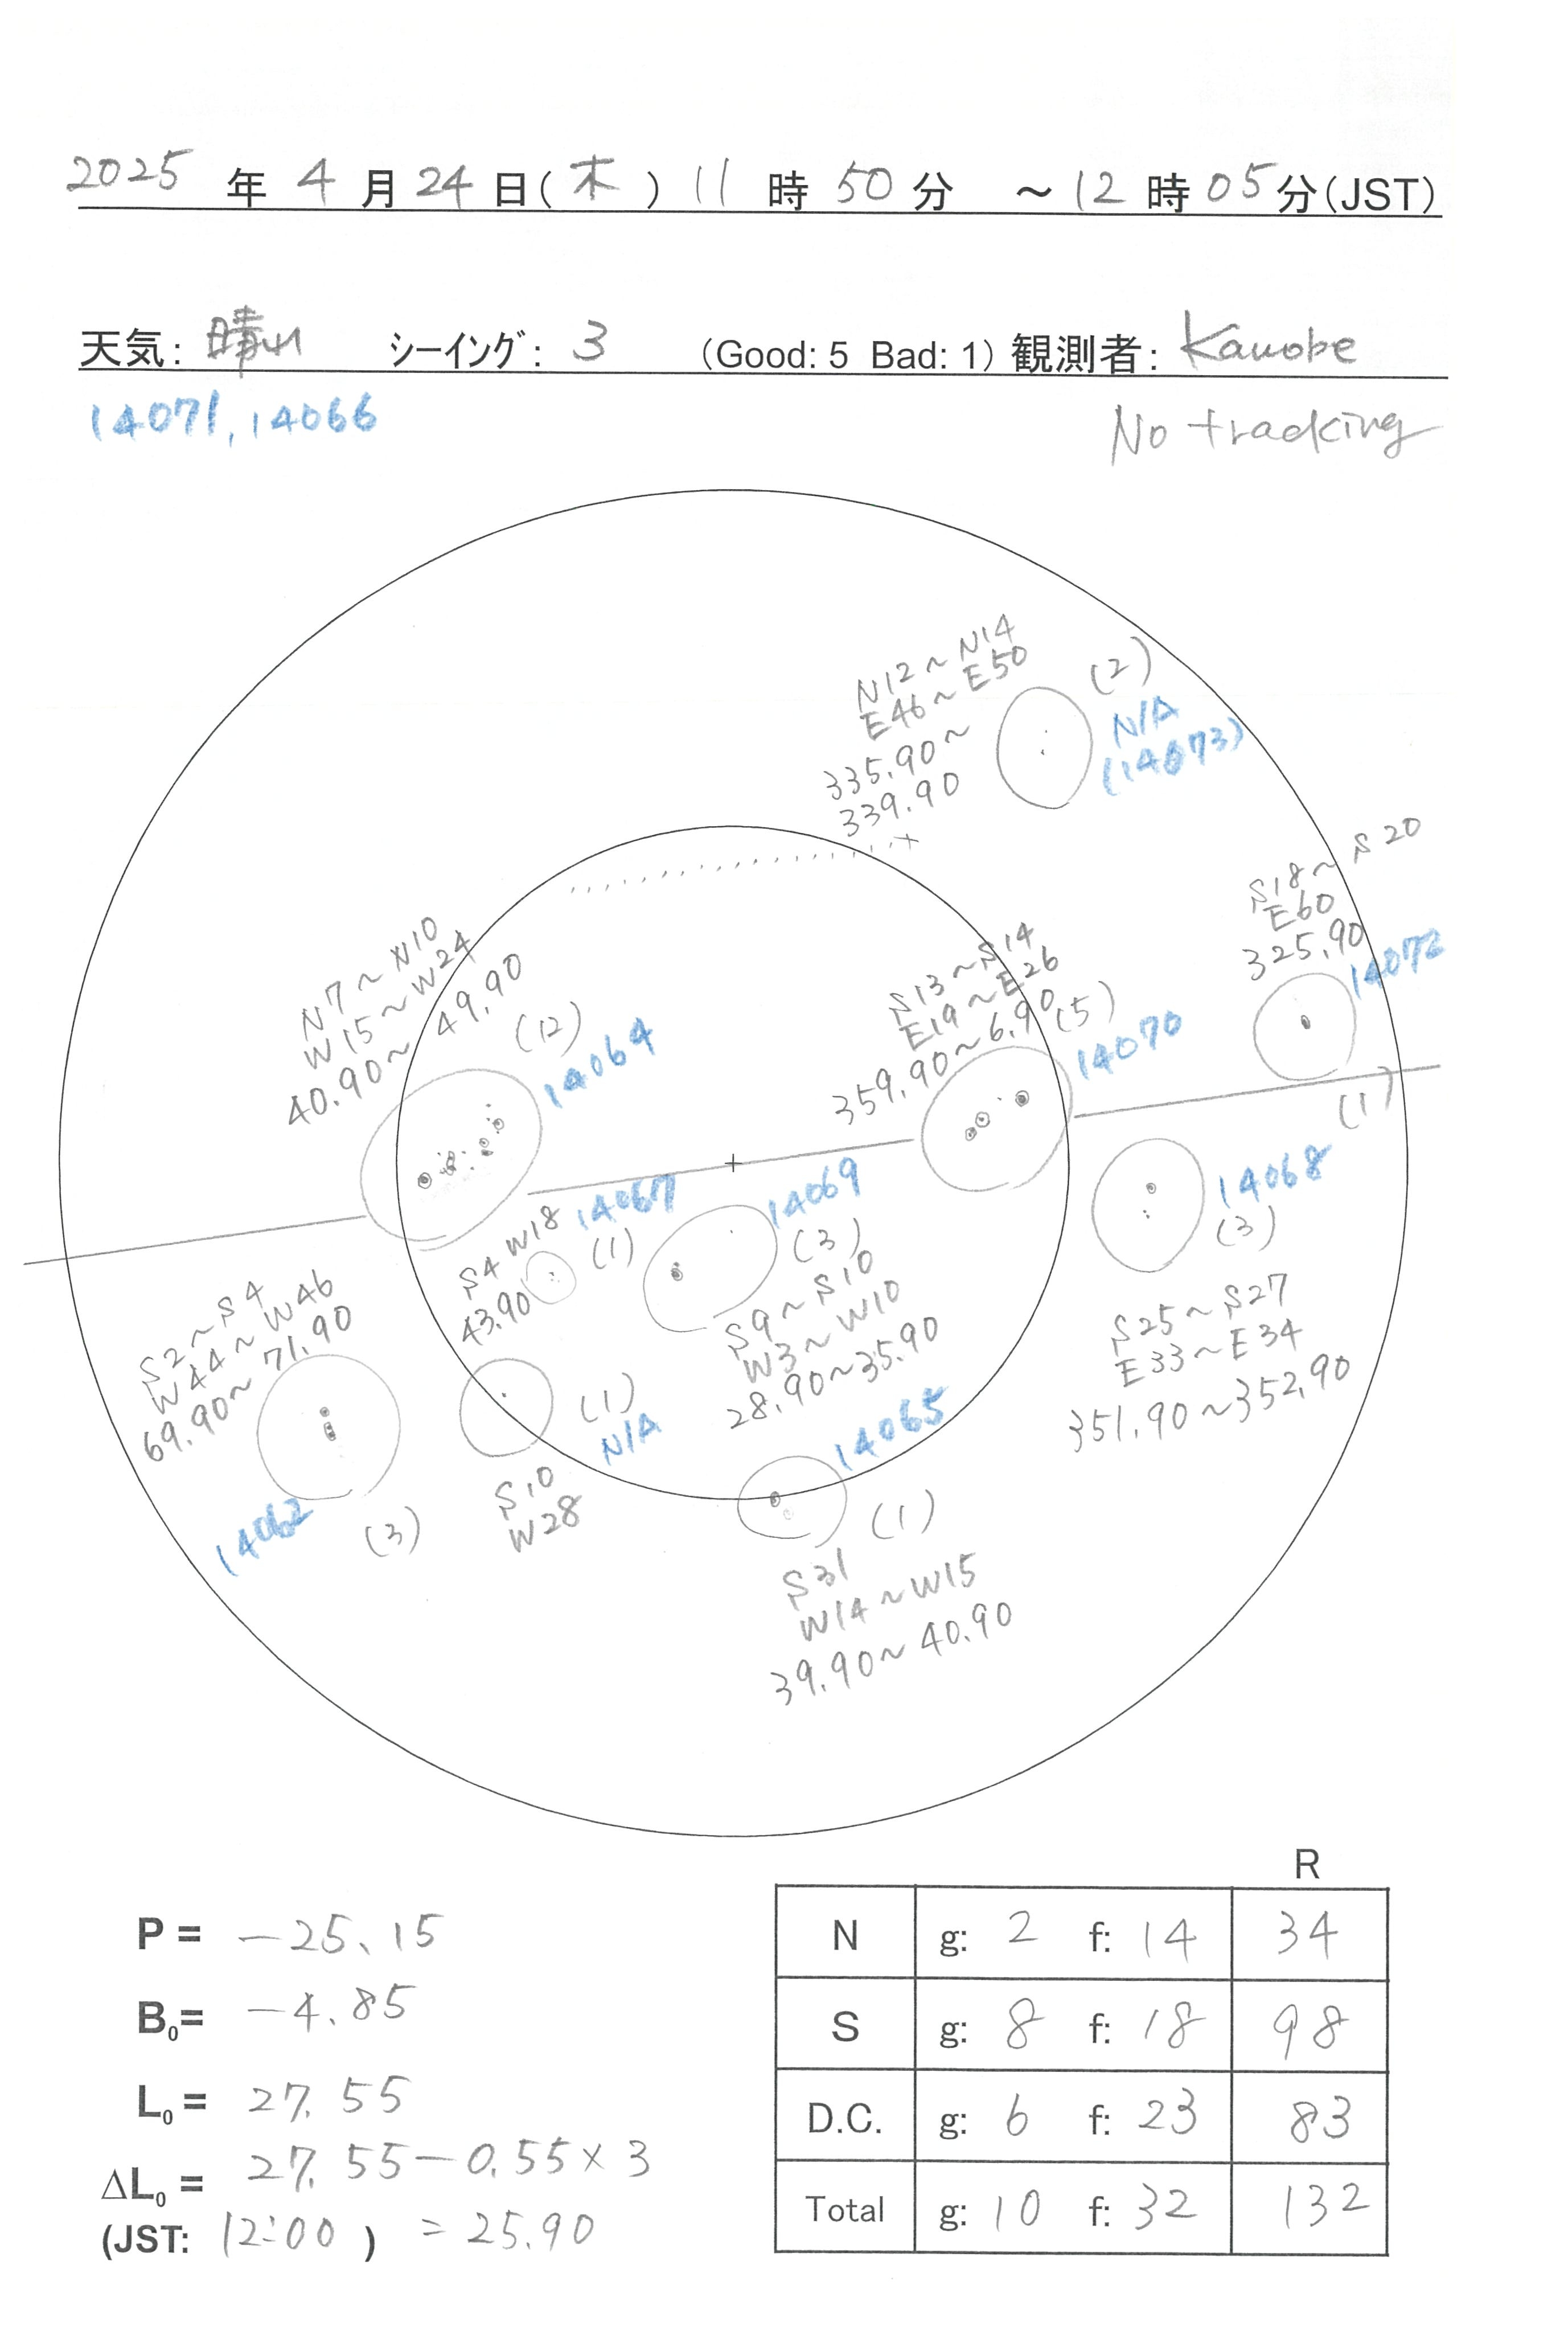 2025 年 4 月 24 日(木) 11 時 50 分 ～12 時 05 分(JST)
天気: 晴れ シーイング: 3 (Good: 5 Bad: 1) 観測者: Kanobe
14071, 14066
No tracking
N12～N14
E46～E50
335.90～
339.90
(2)
N/A
(14073)
S18～S20
E60
325.90
14072
(1)
N7～N10
W15～W24
40.90～49.90
(12)
14064
S13～S14
E19～E26
359.90～6.90
(5)
14070
S4 W18
43.90
14067
(1)
14069
(3)
S9～S10
W3～W10
28.90～35.90
14068
(3)
S25～S27
E33～E34
351.90～352.90
S2～S4
W44～W46
69.90～71.90
14062
(3)
(1)
N/A
S10
W28
14065
(1)
S31
W14～W15
39.90～40.90
P = －25.15
B₀= －4.85
L₀ = 27.55
ΔL₀ = 27.55－0.55×3
(JST: 12:00 ) = 25.90
R
N g: 2 f: 14 34
S g: 8 f: 18 98
D.C. g: 6 f: 23 83
Total g: 10 f: 32 132